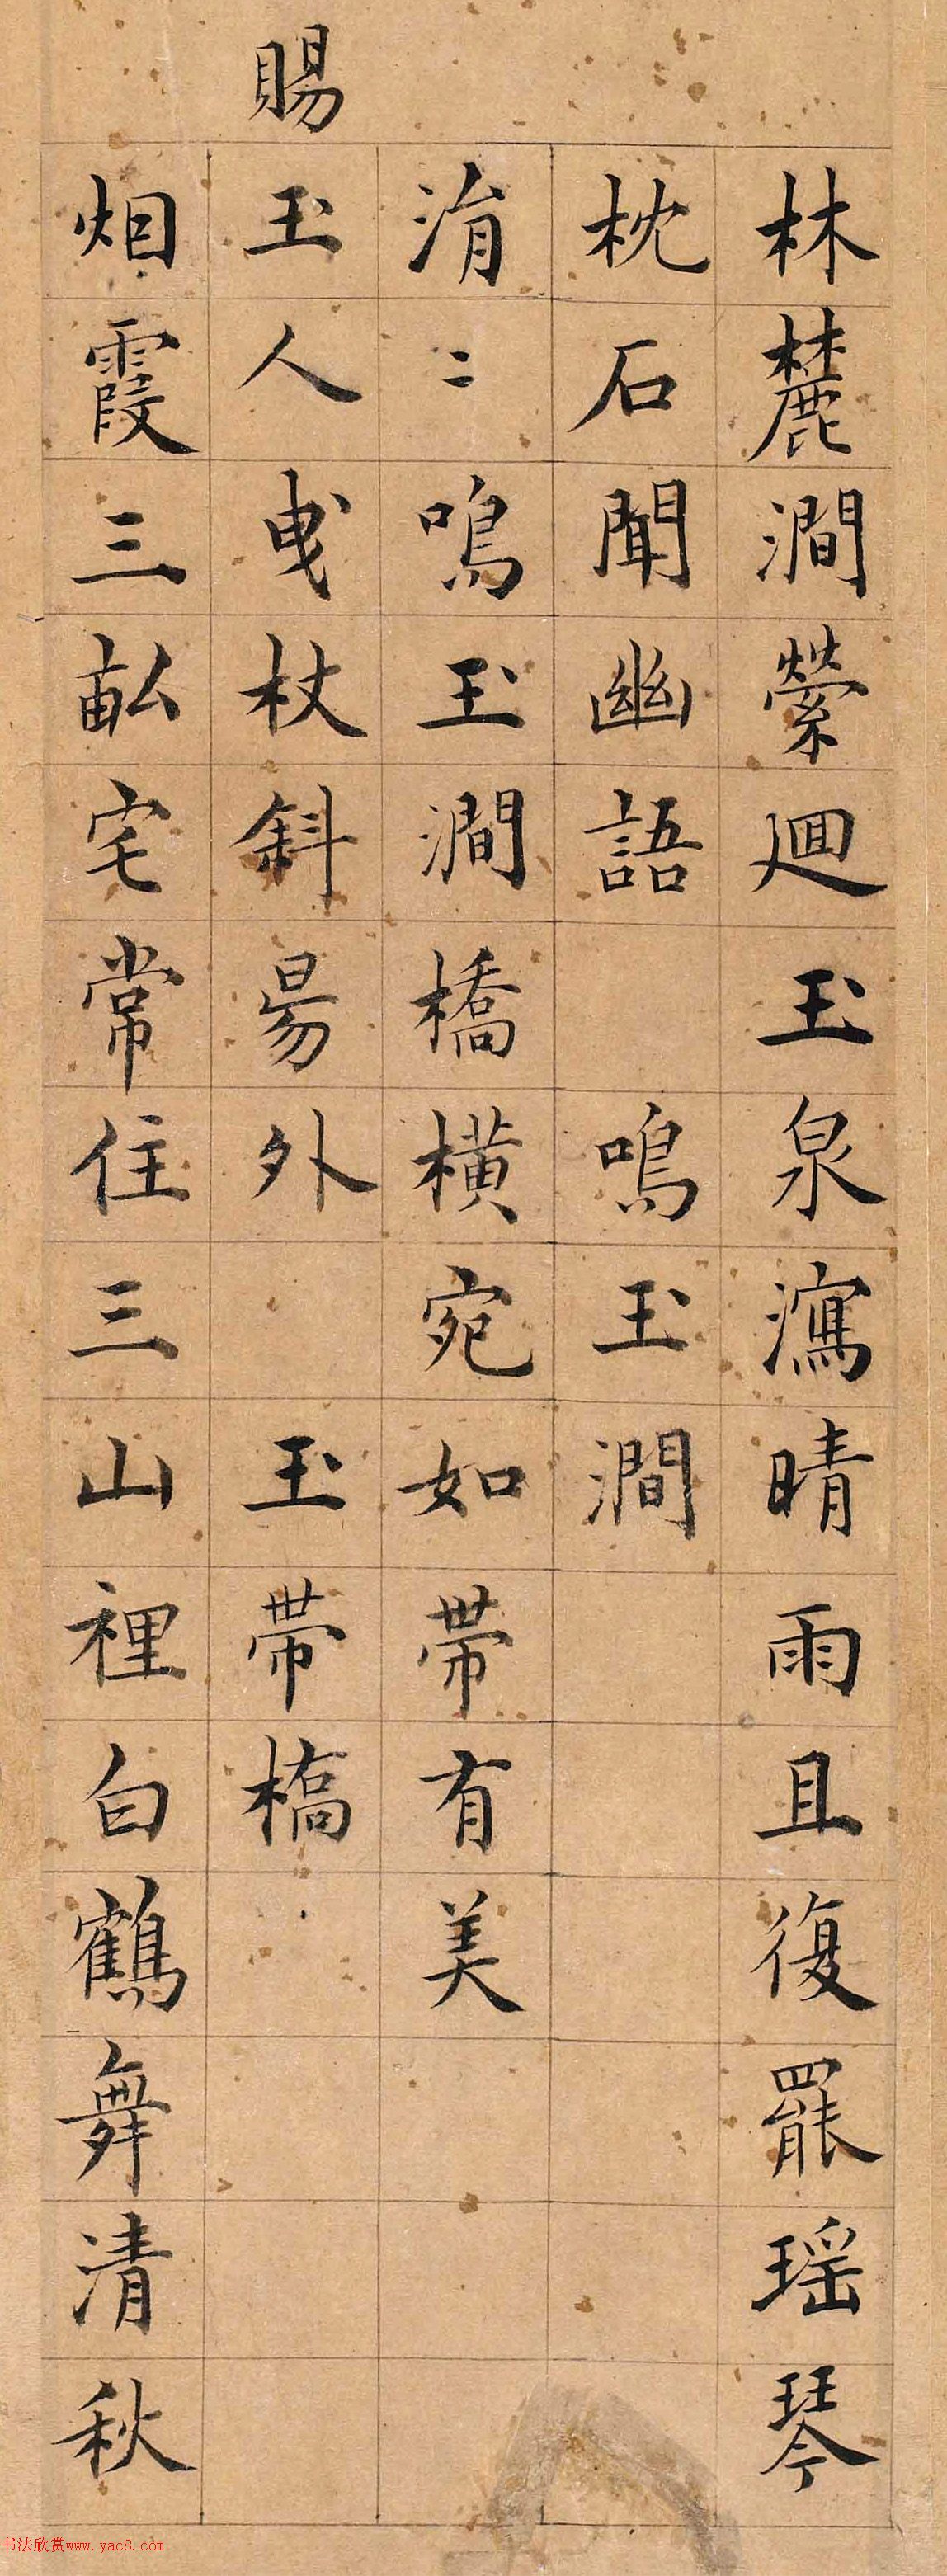 林麓澗縈廻玉泉瀉晴雨且復罷瑶琴
枕石聞幽語 鳴玉澗
湝〻鳴玉澗橋横宛如帶有美
玉人曳杖斜昜外 玉帶橋
賜
烟霞三畝宅常住三山裡白鶴舞清秋
书法欣赏www.yac8.com